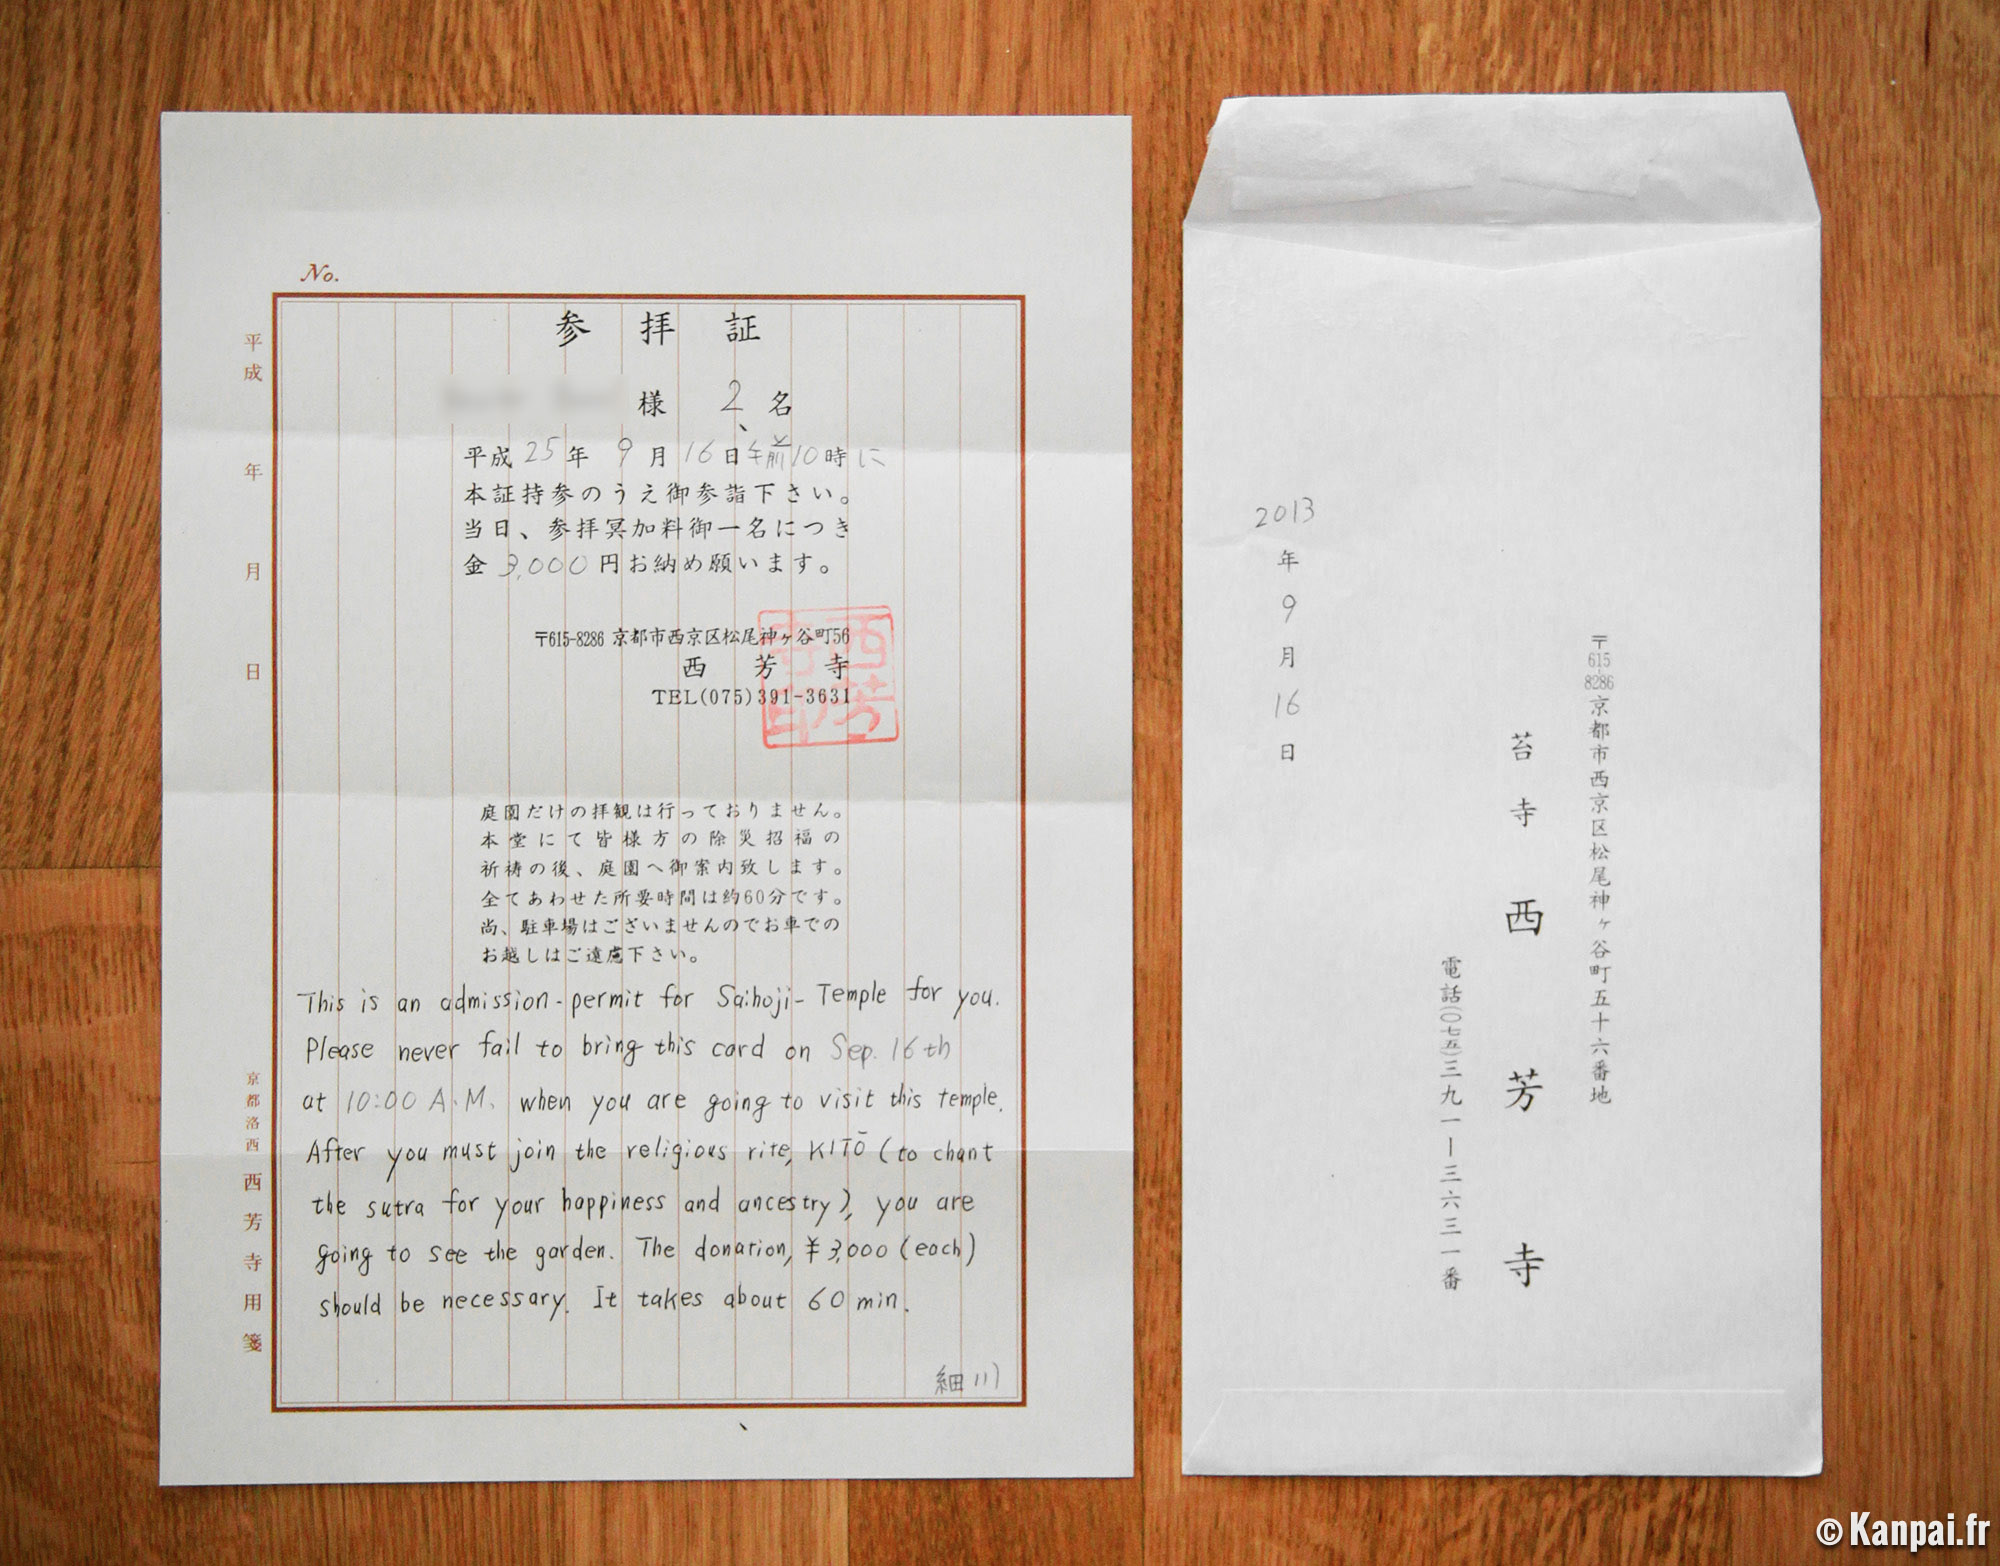 No.
参拝証
様 2名
平成25年 9月16日午前10時に
本証持参のうえ御参詣下さい。
当日、参拝冥加料御一名につき
金 3,000円お納め願います。
〒615-8286 京都市西京区松尾神ヶ谷町56
西芳寺
TEL(075)391-3631
西芳寺印
庭園だけの拝観は行っておりません。
本堂にて皆様方の除災招福の
祈祷の後、庭園へ御案内致します。
全てあわせた所要時間は約60分です。
尚、駐車場はございませんのでお車での
お越しはご遠慮下さい。
This is an admission-permit for Saihoji-Temple for you.
Please never fail to bring this card on Sep. 16th
at 10:00 A.M. when you are going to visit this temple.
After you must join the religious rite, KITŌ (to chant
the sutra for your happiness and ancestry), you are
going to see the garden. The donation, ¥3,000 (each)
should be necessary. It takes about 60 min.
細川
平成 年 月 日
京都洛西 西芳寺用箋
〒615-8286 京都市西京区松尾神ヶ谷町五十六番地
苔寺 西芳寺
電話(〇七五)三九一ー三六三一番
2013年9月16日
© Kanpai.fr